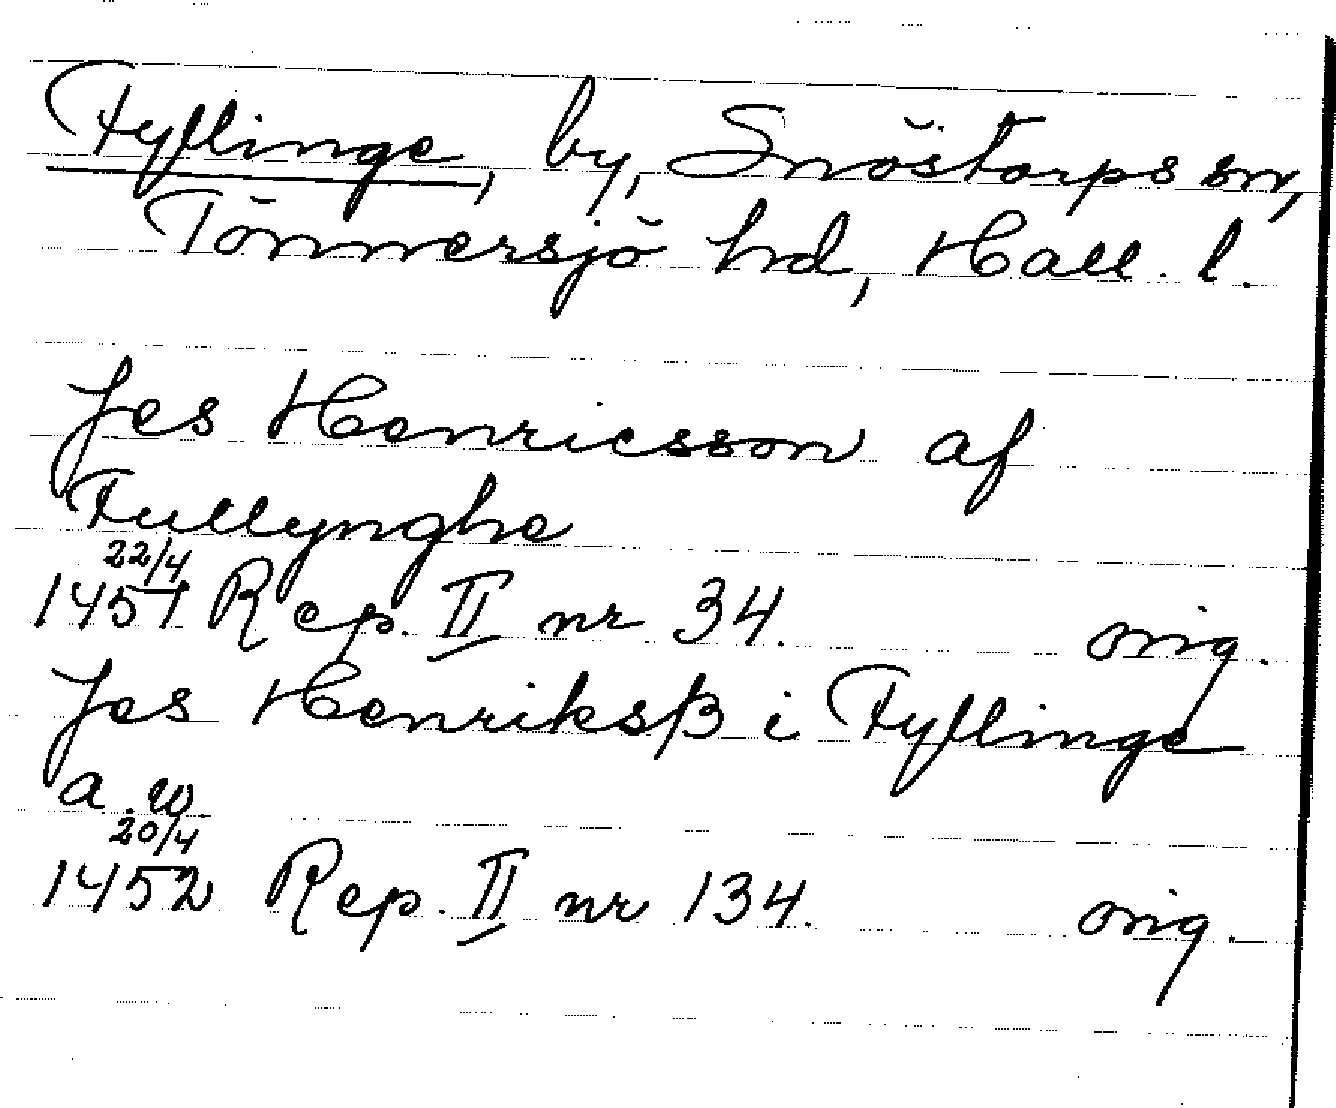 Fyllinge, by, Snöstorps sn,
Tönnersjö hd, Hall. l.
Jes Henricsson af
Fullynghe
22/4
1451 Rep. II nr 34. orig.
Jes Henriksß i Fyllinge
a.w.
20/4
1452 Rep. II nr 134. orig.